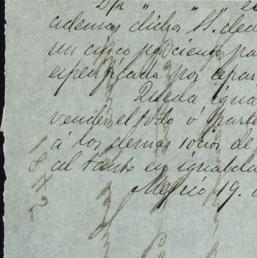 Dn " "
ademas dicho Sr. dec
un cinco porciento pa
especificada por separ
Queda igua
vender el todo ó parte
á los demas socios de
al tanto en igualda
Mexico 19. d